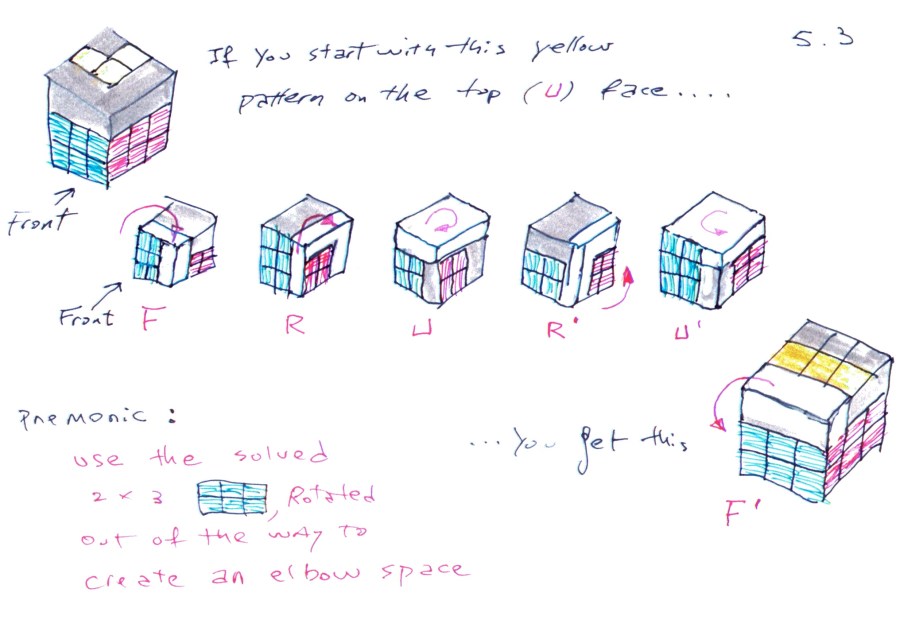 5.3
If you start with this yellow
pattern on the top (U) face....
Front
Front
F
R
U
R'
U'
Pnemonic:
use the solved
2 x 3 , Rotated
out of the way to
create an elbow space
... you get this
F'